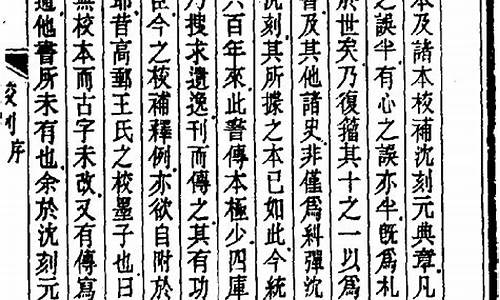 本及諸本校補沈刻元典章凡
之誤半有心之誤亦半既爲札
於世矣乃復籀其十之一以爲
書及其他諸史非僅爲糾彈沈
沈刻其所據之本已如此今統
六百年來此書傳本極少四庫
乃搜求遺逸刊而傳之其有功
臣今之校補釋例亦欲自附於
耶昔高郵王氏之校墨子也曰
無校本而古字未改又有傳寫
他書所未有也余於沈刻元
序